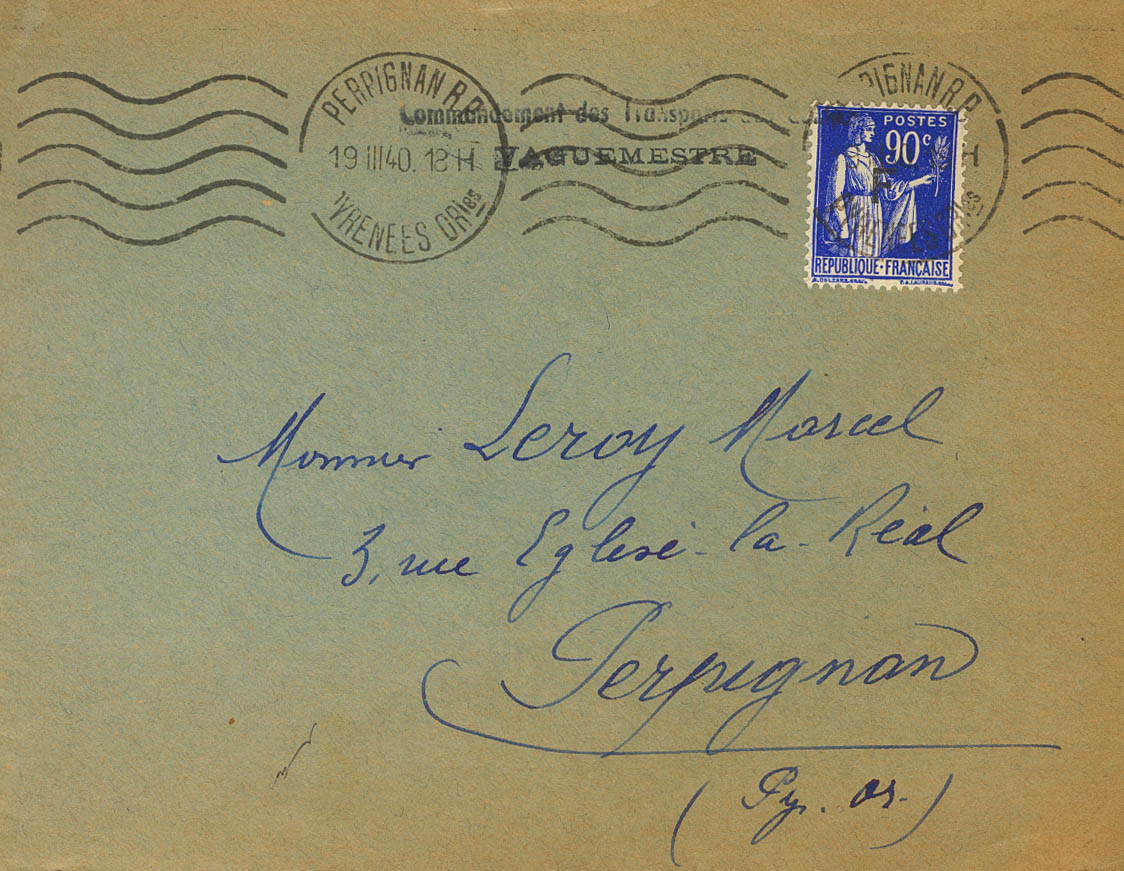 PERPIGNAN R.P.
19 III 40. 18 H
PYRENEES ORles
Commandement des Transports
VAGUEMESTRE
PIGNAN R.P.
H
POSTES
90c
F
REPUBLIQUE·FRANÇAISE
Monsieur Leroy Marcel
3, rue Eglise-la-Réal
Perpignan
(Py. Or.)